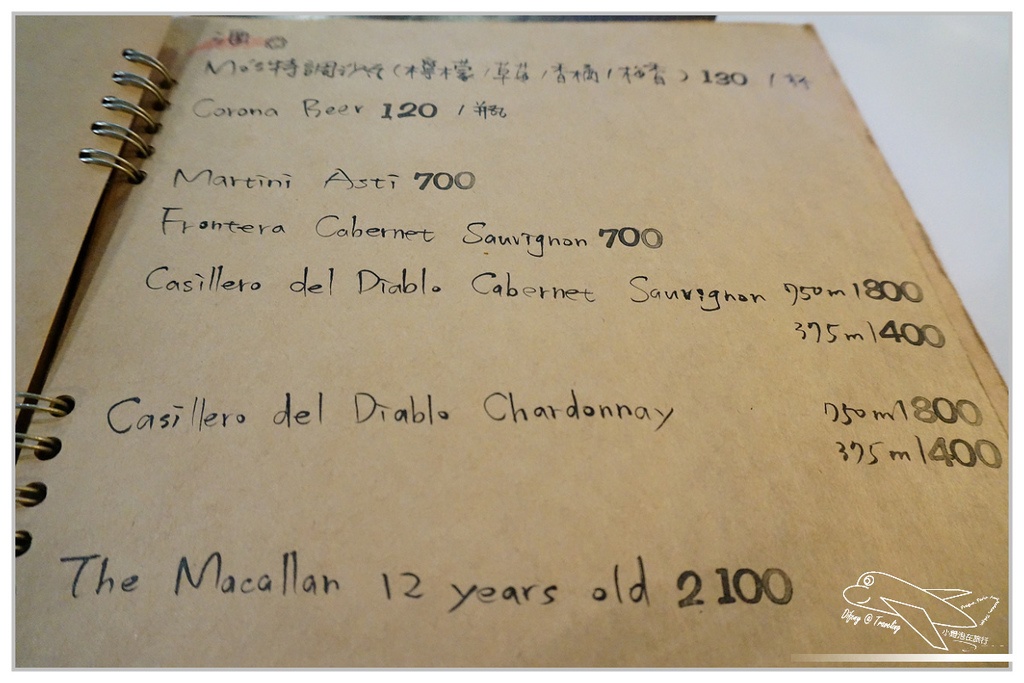 酒
Mo's特調沙瓦(檸檬/草莓/香橘/梅香) 130 /杯
Corona Beer 120 /瓶
Martini Asti 700
Frontera Cabernet Sauvignon 700
Casillero del Diablo Cabernet Sauvignon 750ml 800
375ml 400
Casillero del Diablo Chardonnay 750ml 800
375ml 400
The Macallan 12 years old 2100
小飛泡在旅行